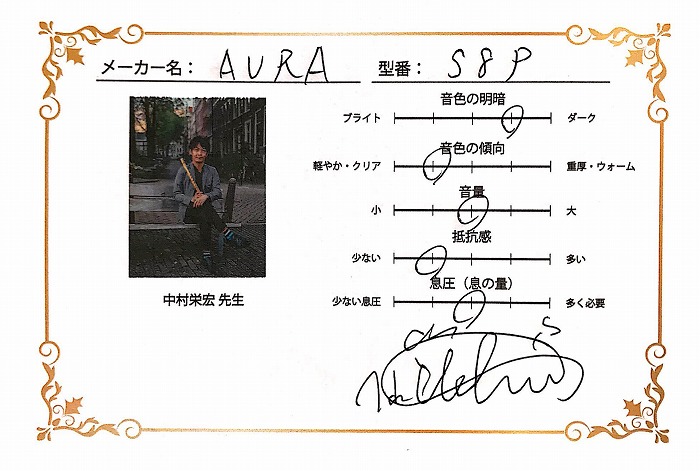 メーカー名： AURA 型番： S8P
音色の明暗
ブライト ダーク
音色の傾向
軽やか・クリア 重厚・ウォーム
音量
小 大
抵抗感
少ない 多い
息圧（息の量）
少ない息圧 多く必要
中村栄宏 先生